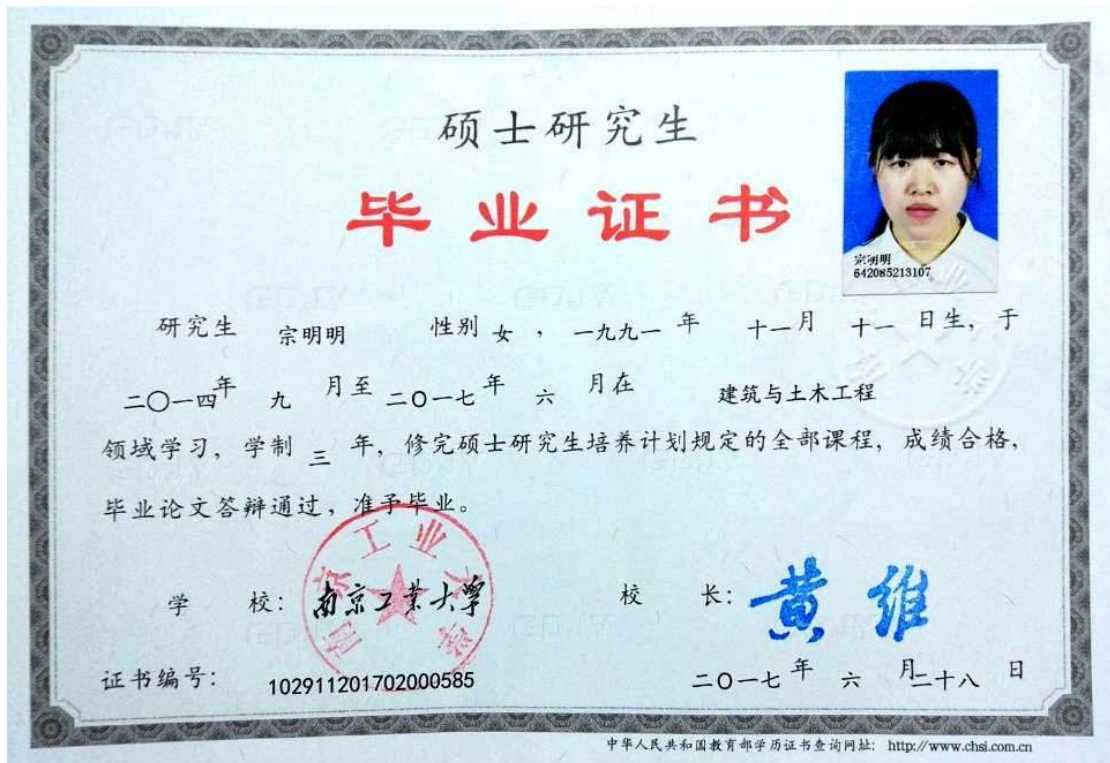 硕士研究生
毕业证书
宗明明
642085213107
研究生 宗明明 性别 女 ， 一九九一 年 十一 月 十一 日生，于
二〇一四 年 九 月至 二〇一七 年 六 月在 建筑与土木工程
领域学习，学制 三 年，修完硕士研究生培养计划规定的全部课程，成绩合格，
毕业论文答辩通过，准予毕业。
南京工业大学
学 校：南京工业大学 校 长：黄维
证书编号： 102911201702000585 二〇一七 年 六 月二十八 日
中华人民共和国教育部学历证书查询网址： http://www.chsi.com.cn